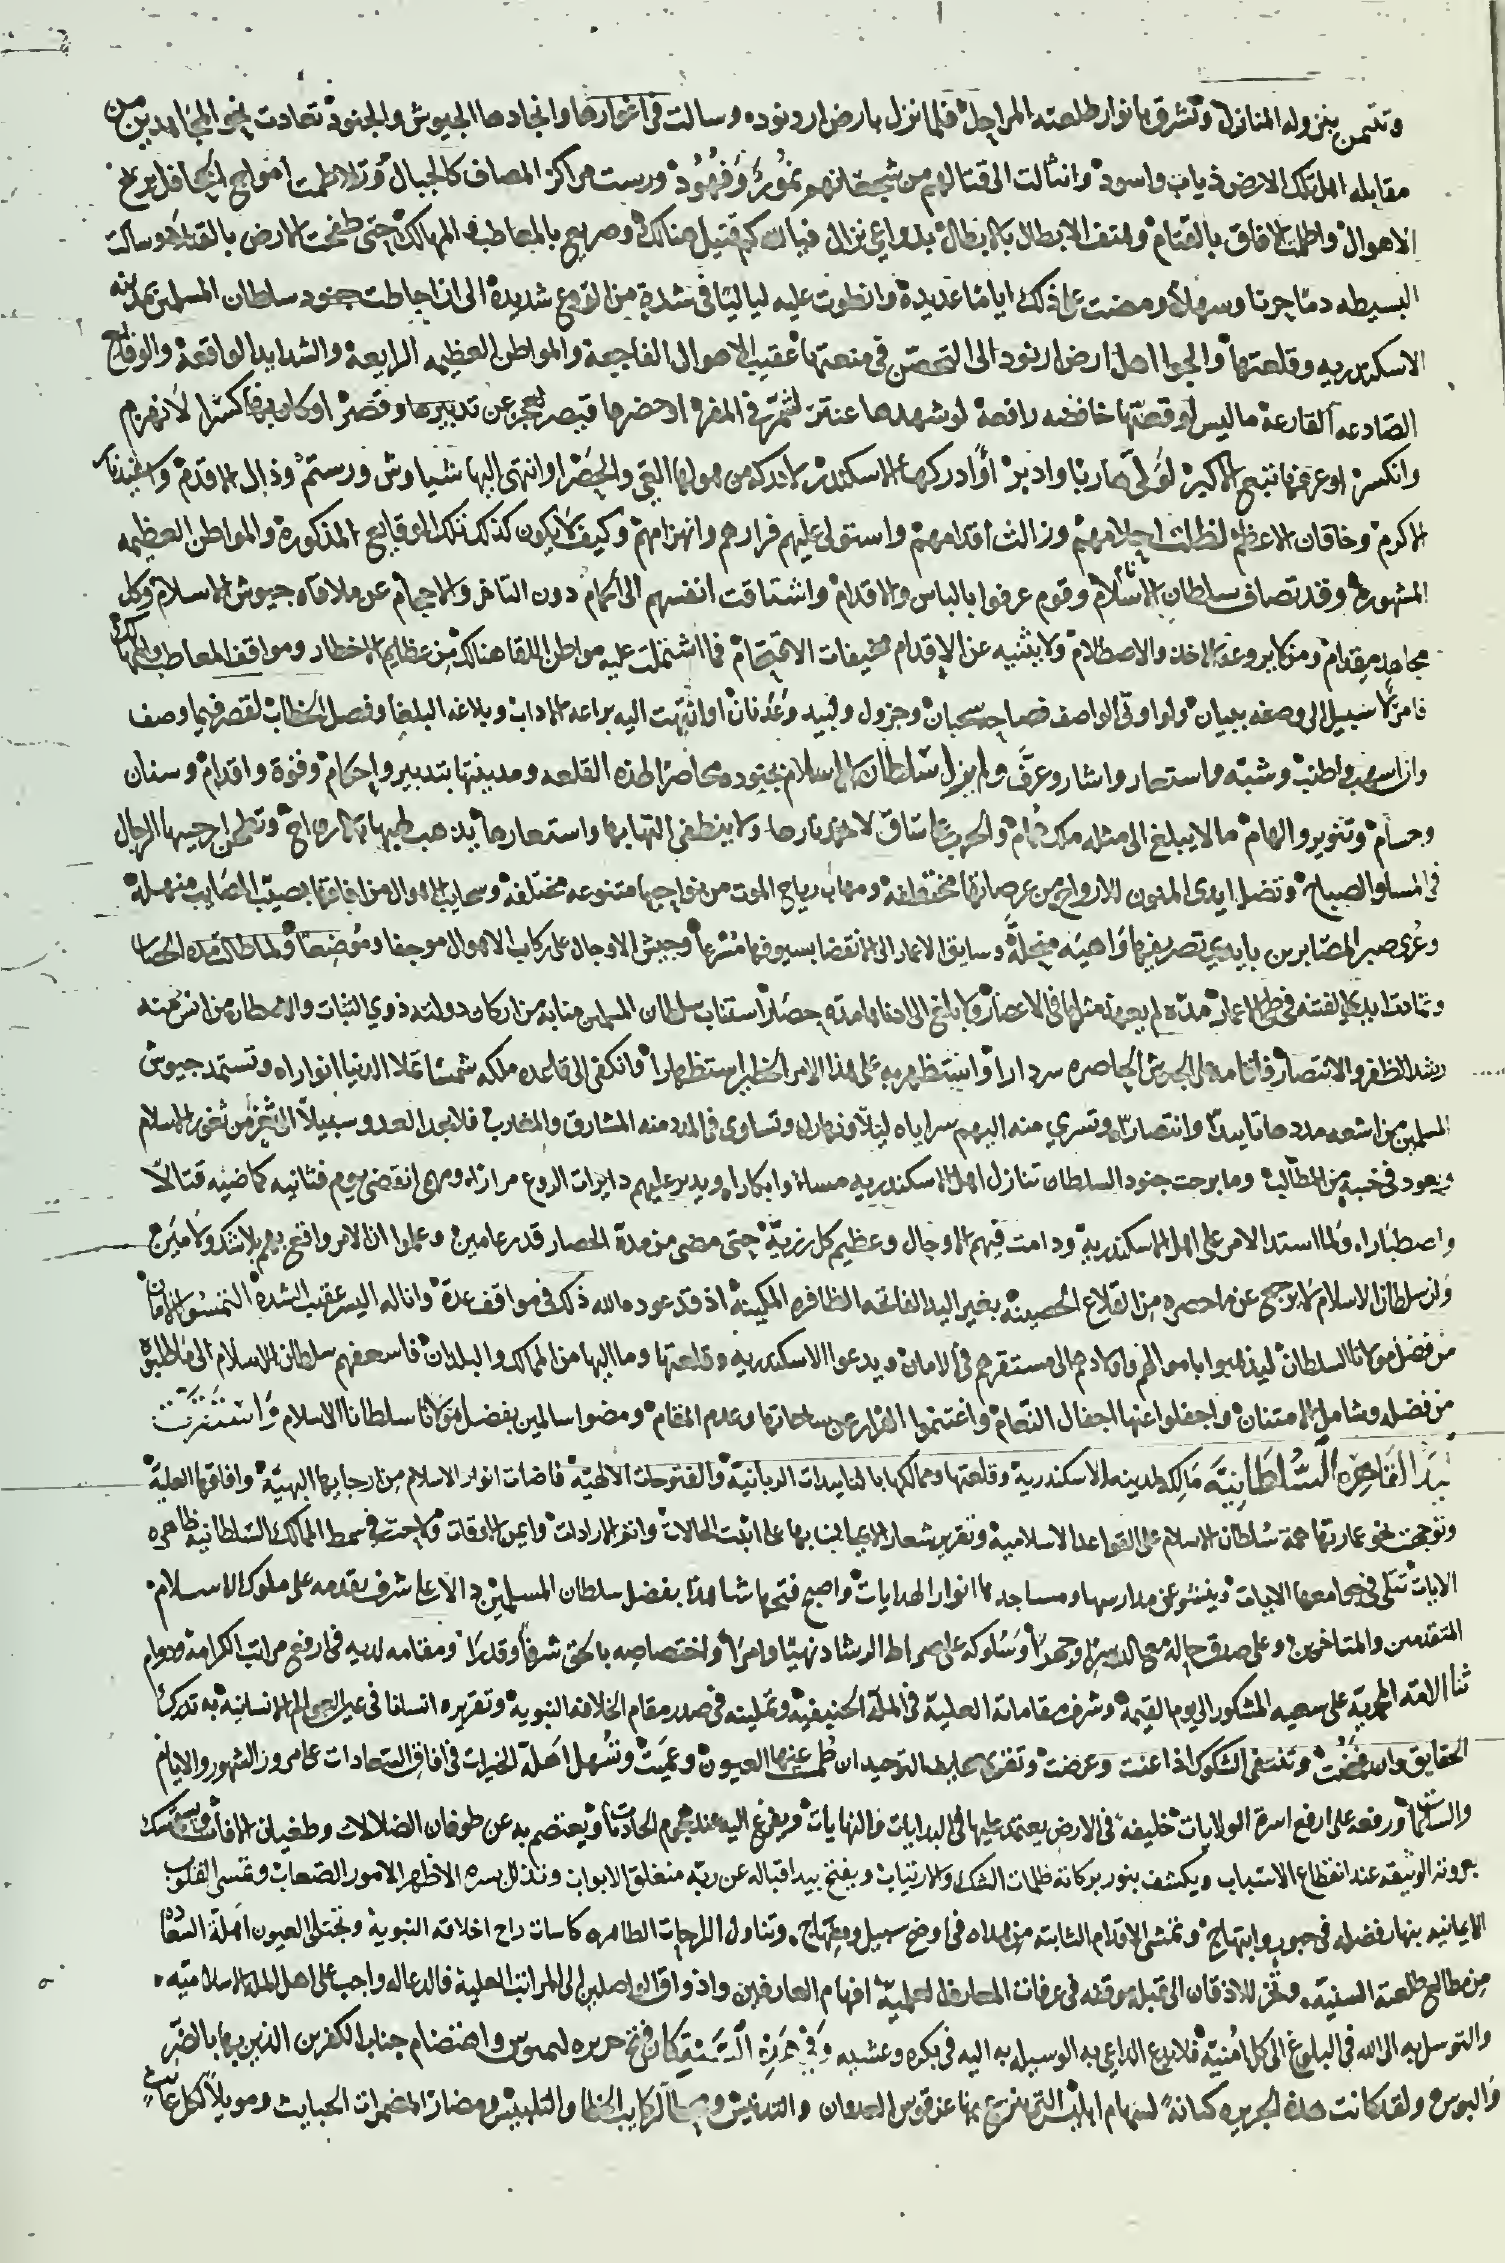 وتتيمن بنزوله المنازل وتشرق بانوار طلعته المراحل فلما نزل بارض ارونوده وسالت في اغوارها وانجادها الجيوش والجنود تعادت نحو المجاهدين من
مقابله اهل تلك الارض ذياب واسود وانثالت الى قتالهم من شجعانهم نمور وفهود ورست مراكز المصاف كالجبال وتلاطمت امواج الجحافل بريح
الاهوال واظلمت الافاق بالقتام والتف الابطال بالابطال بدواعي نزال فيالله كم قتيل هنالك وصريع بالمعاطب والمهالك حتى طفحت الارض بالقتلى وسالت
البسيطه دما حزنا وسهلا ومضت على ذلك اياما عديدة وانطوت عليه لياليا في شدة من الوقع شديدة الى ان احاطت جنود سلطان المسلمين بمدينه
الاسكندريه وقلعتها والجوا اهل ارض ارنود الى التحصن في منعتها عقيب الاهوال الفاجعة والمواطن العظيمه الرايعة والشدايد الواقعة والوقايع
الصادعه القارعة ما ليس لوقعتها خافضه رافعة لو شهدها عنتر لشمر في المفر او حضرها قيصر لعجز عن تدبيرها وقصر او كان بها كسرا لانهزم
وانكسر او عرفها تبع الاكبر لولى هاربا وادبر او ادركها الاسكندر لادركه من هولها العي والحصر او انتهى اليها سياوش ورستم وذال الاقدم واسفنديار
الاكرم وخاقان الاعظم لطلت احلامهم وزالت اقدامهم واستولى عليهم فرارهم وانهزامهم وكيف لا يكون كذلك تلك الوقايع المذكورة والمواطن العظيمه
المشهوره وقد تصاف سلطان الاسلام وقوم عرفوا بالباس والاقدام واشتاقت انفسهم الى الحمام دون التاخر والاحجام عن ملاقاه جيوش الاسلام وكل
مجاهد مقدام ومن لا يروعه الاخذ والاصطلام ولا يثنيه عن الاقدام مخيفات الاقتحام فما اشتملت عليه مواطن اللقا هنالك من عظايم الاخطار ومواقف المعاطب والمهالك
فامر لا سبيل الى وصفه ببيان ولو اوتي الواصف فصاحه سحبان وجزول ولبيد وعدنان او انتهت اليه براعه الاداب وبلاغه البلغا وفصل الخطاب لقصر فيما وصف
وان اسهب واطنب وشبه واستعار واشار وعرف ولم يزل سلطان الاسلام بجنوده محاصرا لهذه القلعه ومدينتها بتدبير واحكام وقوة واقدام وسنان
وحسام وتنوير والهام ما لا يبلغ الى مثله ملك همام والحرب على ساق لا تخمد نارها ولا ينطفي التهابها واستعارها يذهب لهيبها بالارواح وتطحن ارحيها الرجال
في المسا والصباح وتضل ايدي المنون للارواح من عرصاتها مختطفه ومهاب رياح الموت من نواحيها متنوعه مختلفه وسحايب الاهوال من افاقها بصيب المصايب منهلة
وعرى صبر المصابرين بايدي تصريفها واهيه منحلة وسابق الاعمار الى الانقضا بسيوفها مسرعا وجيش الاوجال على ركاب الاهوال موجفا وموضعا ولما طالت مده الحصار
وتمادت ايدي الفتنه في طي الاعمار مدة لم يعهد مثلها في الاعصار ولا بلغ الى ادناها مدة حصار استناب سلطان المسلمين منابه من اركان دولته ذوي الثبات والاصطبار من انس منه
رشد الظفر والانتصار فاقامه على الجيوش المحاصره سردارا واستظهر به على هذا الامر الخطير استظهارا وانكفى الى قاعده ملكه شمسا تملا الدنيا انوارا وتستمد جيوش
المسلمين من اشعه مددها تاييدا وانتصارا وتسري منه اليهم سراياه ليلا ونهارا وتساوى في المدد منه المشارق والمغارب فلا يجد العدو سبيلا الى ثغر من ثغور الاسلام
ويعود في خيبه من المطالب وما برحت جنود السلطان تنازل اهل الاسكندريه مساء وابكارا ويدير عليهم دايرات الروع مرارا ومهى انقضى يوم فثانيه كماضيه قتالا
واصطبارا ولما اشتد الامر على اهل الاسكندرية ودامت فيهم الاوجال وعظيم كل رزية حتى مضى من مدة الحصار قدر عامين وعلموا ان الامر واقع بهم بلا شك ولا مين
وان سلطان الاسلام لا يرجع عن ما حصره من القلاع الحصينة بغير اليد الفاتحه الظافره المكينة اذ قد عوده الله ذلك في مواقف عدة واناله اليسر عقيب الشدة التمسوا الامان
من فضل مولانا السلطان ليذهبوا باموالهم واولادهم الى مستقرهم في الامان ويدعوا الاسكندريه وقلعتها وما اليها من الممالك والبلدان فاسعفهم سلطان الاسلام الى ما طلبوه
من فضله وشامل الامتنان واجفلوا عنها اجفال النعام واغتنموا الفرار عن ساحاتها وعدم المقام ومضوا سالمين بفضل مولانا سلطان الاسلام واستقرت
يد القاهره السلطانية مالكة لمدينه الاسكندرية وقلعتها وممالكها بالتاييدات الربانية والفتوحات الالهية فاضات انوار الاسلام من ارجايها البهية وافاقها العلية
وتوجهت نحو عمارتها همة سلطان الاسلام على القواعد الاسلامية وتقرير شعار الايمان بها على اثبت الحالات واتم الارادات وايمن الاوقات ولاحت في سمط الممالك السلطانيه ظاهره
الايات تتلى في جوامعها الايات وينشو عن مدارسها ومساجدها انوار الهدايات واصبح فتحها شاهدا بفضل سلطان المسلمين دالا على شرف تقدمه على ملوك الاسلام
المتقدمين والمتاخرين وعلى صدق حاله مع الله سرا وجهرا وسلوكه على صراط الرشاد نهيا وامرا واختصاصه بالحق شرفا وقدرا ومقامه لديه في ارفع مراتب الكرامة ودوام
ثنا الامه المحمدية على سعيه المشكور الى يوم القيمة وشرف مقاماته العلية في الملة الحنيفية وتمكينه في صدر مقام الخلافه النبوية وتقريره انسانا في عين العوالم الانسانية به تدرك
الحقايق وان غمضت وتنتفي الشكوك اذا عنت وعرضت وتقتدي به لطايف التوحيد ان ظلمت عنها العيون وعميت وتستهل اهلة الخيرات في افاق السعادات على مرور الشهور والايام
والساعات ورفعه على ارفع اسرة الولايات خليفه في الارض يعتمد عليها في البدايات والنهايات ويفزع اليه عند هجوم الحادثات ويعتصم به عن طوفان الضلالات وطغيان الافات ويستمسك
بعروته الوثيقه عند انقطاع الاسباب ويكشف بنور بركاته ظلمات الشك والارتياب ويفتح بيد اقباله عن ربه منغلق الابواب وتذلل بسره الاظهر الامور الصعاب وتمسي القلوب
الايمانيه بنهار فضله في حبور وابتهاج وتمشي الاقدام الثابته من هداه في اوضح سبيل ومنهاج وتناول الارواح الطاهره كاسات راح اخلاقه النبوية وتجتلي العيون اهلة السعادة
من مطالع طلعته السنية وتخر للاذقان الى قبلة موقفه في عرفات المعارف العلمية افهام العارفين واذواق الواصلين الى المراتب العلية فالدعا له واجب على اهل الملة الاسلاميه
والتوسل به الى الله في البلوغ الى كل امنية فلا يدع الداعي به الوسيله به اليه في بكره وعشيه وفي هذه السنة كان فتح جزيره واهتضام جناب الكفرين الذين بها بالضر
والبوس ولقد كانت هذه الجزيره كنانة لسهام ابليس التي نزع بها عن قوس العدوان والتدنيس الخطا والتلبيس ومضار المضمرات الخبايث ومويلا لكل عايث